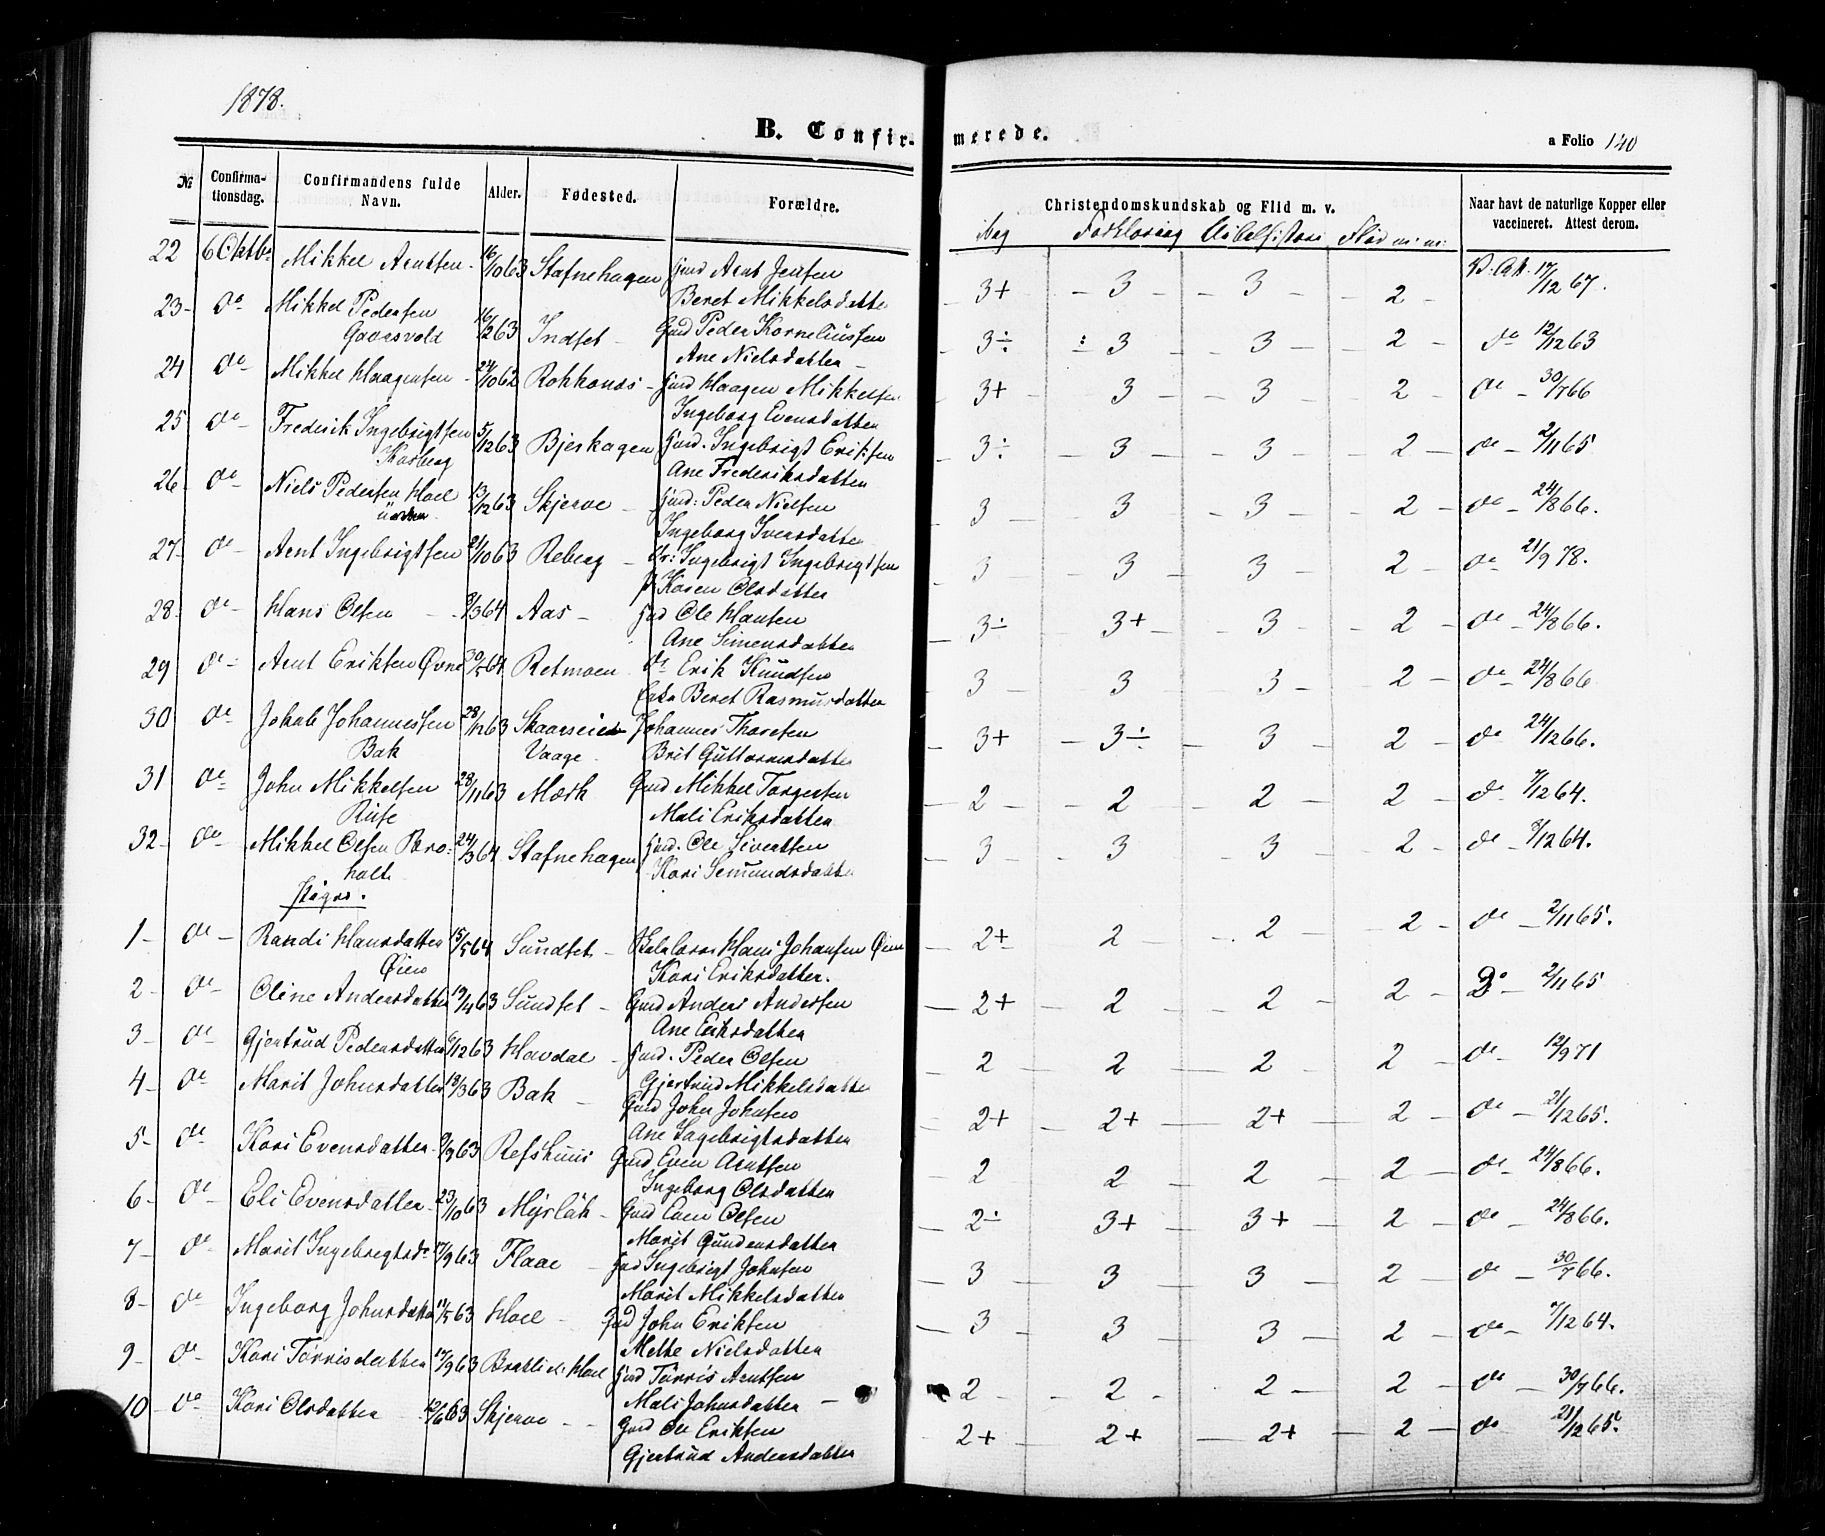 1878.
B. Confir- merede.
a Folio 140
№ Confirma-tionsdag. Confirmandens fulde Navn. Alder. Fødested. Forældre. Christendomskundskab og Flid m. v. Naar havt de naturlige Kopper eller vaccineret. Attest derom.
Bog Forklaring Bibelhistorie Flid m: m:
22 6 Oktb. Mikkel Arntsen 16/10 63 Stafnehagen Gmd Arnt Jensen 3+ 3 3 2 V. Att. 17/12 67.
Beret Mikkelsdatter
23 do Mikkel Pedersen 16/12 63 Indset Gmd Peder Korneliussen 3÷ ÷ 3 3 2 do 12/12 63
Gaarsvold Ane Nielsdatter
24 do Mikkel Haagensen 24/10 62 Rokkones Gmd Haagen Mikkelsen 3+ 3 3 2 do 30/7 66
Ingeborg Evensdatter
25 do Frederik Ingebrigtsen 5/12 63 Bjerkagen Gmd. Ingebrigt Eriksen 3÷ 3 3 2 do 2/11 65
Kosberg Ane Frederiksdatter
26 do Niels Pedersen Hoel 13/12 63 Skjerve Gmd: Peder Nielsen 3 3 3 2 do 24/8 66.
Ingeborg Iversdatter
27 do Arnt Ingebrigtsen 21/10 63 Reberg Ingebrigt Ingebrigtsen 3 3 3 2 do 21/9 78.
Karen Olsdatter
28 do Hans Olsen 9/3 64 Aas Gmd Ole Hansen 3÷ 3+ 3 2 do 24/8 66.
Ane Simensdatter
29 do Arnt Eriksen Øvne 30/5 64 Retmoen do Erik Knudsen 3 3 3 2 do 24/8 66
Beret Rasmusdatter
30 do Jakob Johannessen 28/12 63 Skaarseiet Johannes Thoresen 3+ 3÷ 3 2 do 24/12 66.
Bak Vaage Brit Guttormsdatter
31 do John Mikkelsen 28/11 63 Mærk Gmd Mikkel Torgersen 2 2 2 2 do 7/12 64.
Rise Mali Eriksdatter
32 do Mikkel Olsen Bro- 24/3 64 Stafnehagen Gmd. Ole Sivertsen 3 3 3 2 do 9/12 64.
holt Kari Semundsdatter
Piger.
1 do Randi Hansdatter 15/5 64 Sundset Hans Johansen Øien 2+ 2 2 2 do 2/11 65.
Øien Kari Eriksdatter.
2 do Oline Andersdatter 19/4 63 Sundset Gmd Anders Andersen 2+ 2 2 2 Do 2/11 65
Ane Eriksdatter
3 do Gjertrud Pedersdatter 6/12 63 Havdal Gmd. Peder Olsen 2 2 2 2 do 12/9 71
Gjertrud Mikkelsdatter
4 do Marit Johnsdatter 18/3 63 Bak Gmd John Johnsen 2+ 2+ 2+ 2 do 21/12 65.
Ane Ingebrigtsdatter
5 do Kari Evensdatter 9/9 63 Refshuus Gmd Even Arntsen 2 2 2 2 do 24/8 66.
Ingeborg Olsdatter
6 do Eli Evensdatter 23/10 63 Myrløk Gmd Even Olsen 2÷ 3+ 3+ 2 do 24/8 66.
Marit Gundersdatter
7 do Marit Ingebrigtsdr 17/9 63 Flaae Gmd Ingebrigt Johnsen 3 3 3 2 do 30/7 66.
Marit Mikkelsdatter
8 do Ingeborg Johnsdatter 11/5 63 Hoel Gmd John Eriksen 3 3 3 2 do 7/12 64.
Mette Nielsdatter
9 do Kari Tørrisdatter 17/9 63 Bratli u. Hoel Gmd Tørris Arntsen 2 2 2 2 do 30/7 66.
Mali Johnsdatter
10 do Kari Olsdatter 12/6 63 Skjerve Gmd Ole Eriksen 2+ 2+ 2+ 2 do 21/12 65.
Gjertrud Andersdatter